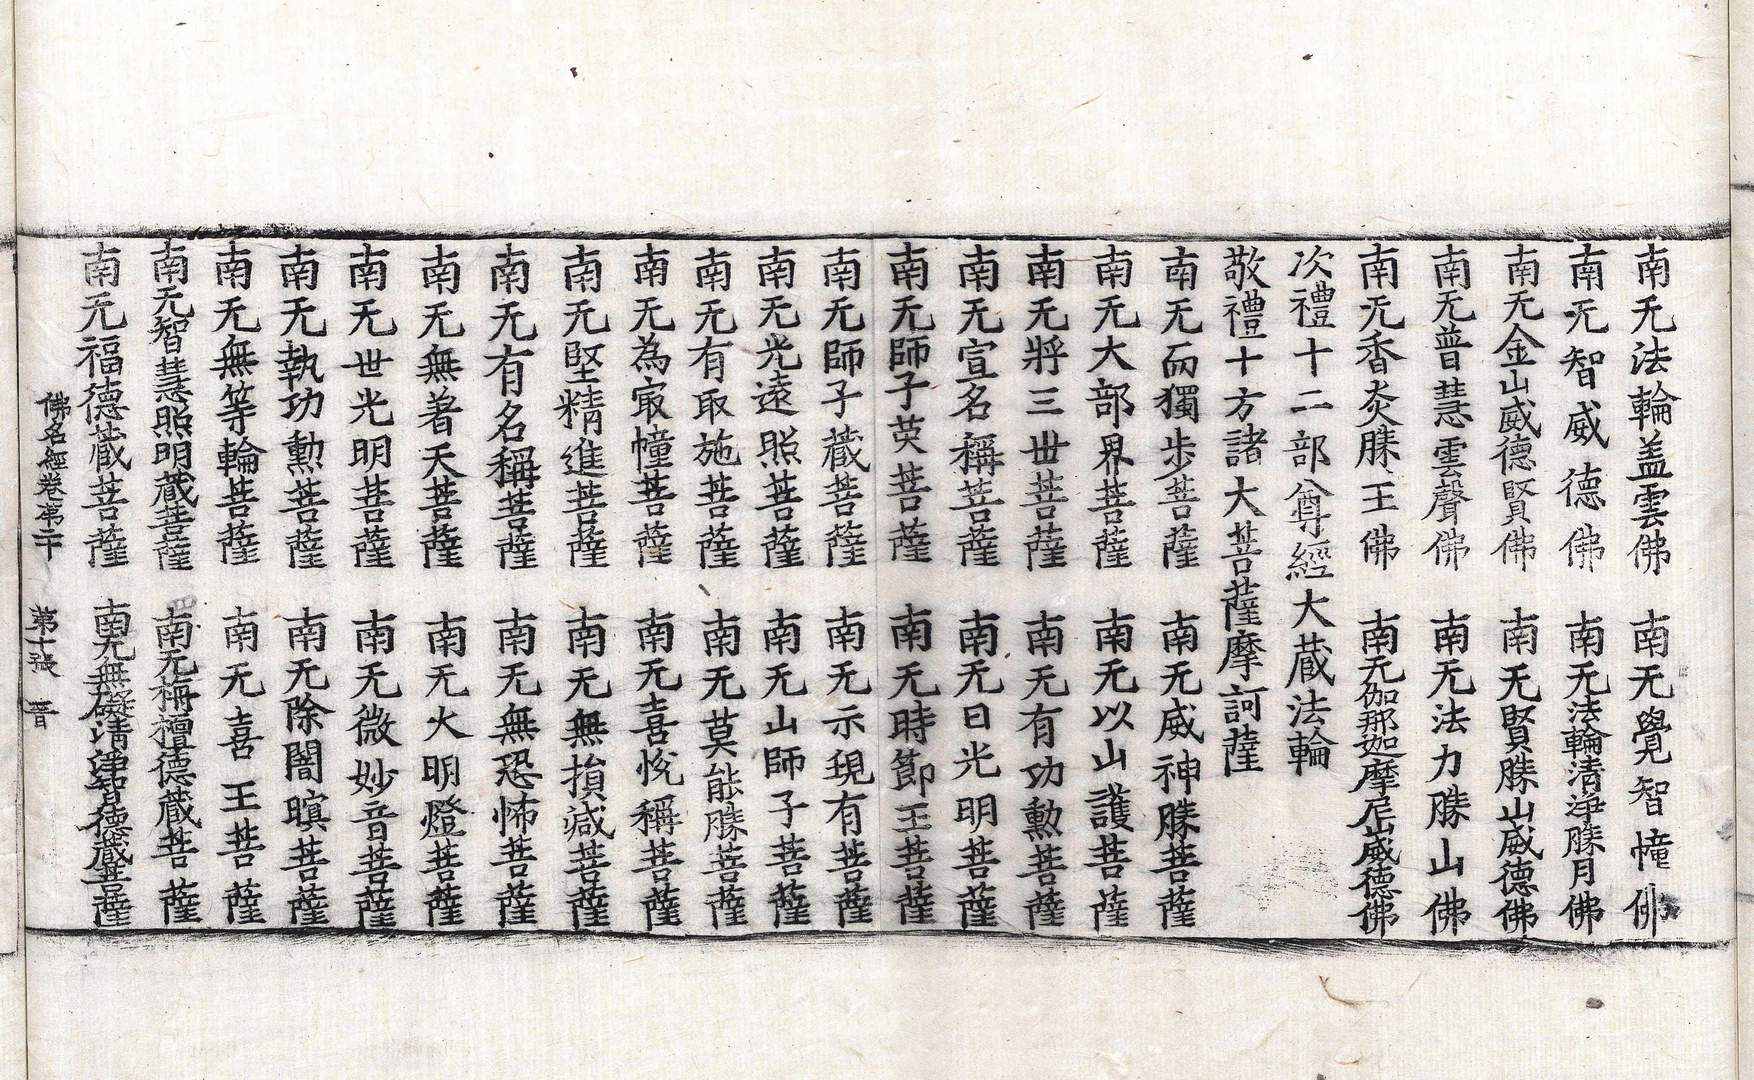 南无法輪盖雲佛　南无覺智幢佛
南无智威德佛　南无法輪清淨勝月佛
南无金山威德賢佛　南无賢勝山威德佛
南无普慧雲聲佛　南无法力勝山佛
南无香炎勝王佛　南无伽那迦摩尼山威德佛
次禮十二部尊經大藏法輪
敬禮十方諸大菩薩摩訶薩
南无而獨步菩薩　南无威神勝菩薩
南无大部界菩薩　南无以山護菩薩
南无將三世菩薩　南无有功勳菩薩
南无宣名稱菩薩　南无日光明菩薩
南无師子英菩薩　南无時節王菩薩
南无師子藏菩薩　南无示現有菩薩
南无光遠照菩薩　南无山師子菩薩
南无有取施菩薩　南无莫能勝菩薩
南无為㝡幢菩薩　南无喜悅稱菩薩
南无堅精進菩薩　南无無損减菩薩
南无有名稱菩薩　南无無恐怖菩薩
南无無著天菩薩　南无火明燈菩薩
南无世光明菩薩　南无微妙音菩薩
南无執功勳菩薩　南无除闇暝菩薩
南无無等輪菩薩　南无喜王菩薩
南无智慧照明藏菩薩　南无栴檀德藏菩薩
南无福德藏菩薩　南无無礙清淨智德藏菩薩
佛名經卷第二十　第十張　晋